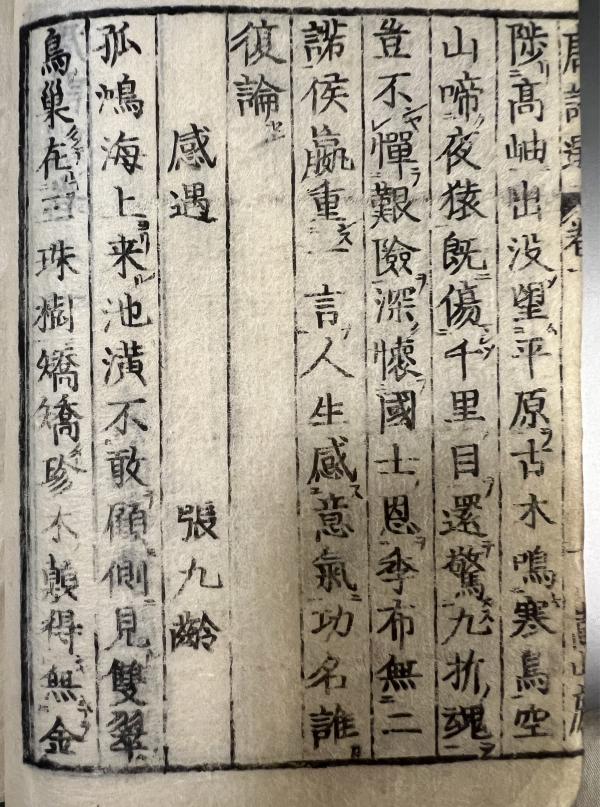 唐詩選 卷一
陟高岫出没望平原古木鳴寒鳥空
山啼夜猿既傷千里目還驚九折魂
豈不憚艱險深懷國士恩季布無二
諾侯嬴重一言人生感意氣功名誰
復論
感遇 張九齡
孤鴻海上来池潢不敢顧側見雙翠
鳥巢在三珠樹矯矯珍木顛得無金